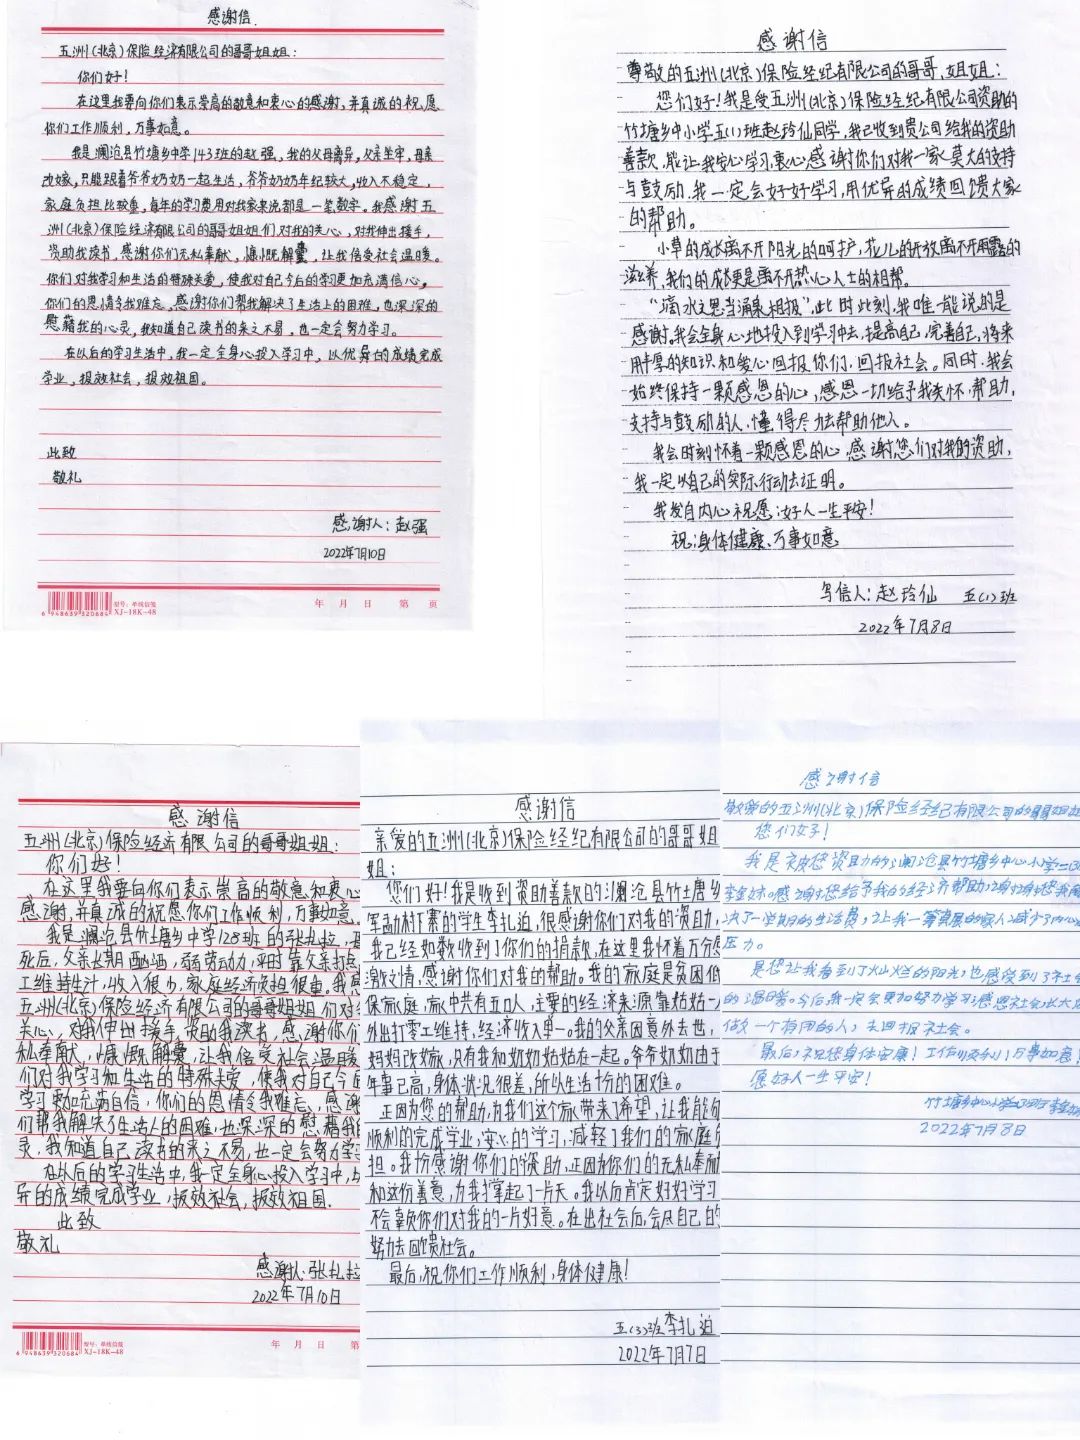 感谢信
五洲(北京)保险经济有限公司的哥哥姐姐:
你们好!
在这里我要向你们表示崇高的敬意和衷心的感谢,并真诚的祝愿
你们工作顺利,万事如意。
我是澜沧县竹塘乡中学143班的赵强,我的父母离异,父亲坐牢,母亲
改嫁,只能跟着爷爷奶奶一起生活,爷爷奶奶年纪较大,收入不稳定,
家庭负担比较重,每年的学习费用对我家来说都是一笔数字。我感谢五
洲(北京)保险经济有限公司的哥哥姐姐们对我的关心,对我伸出援手,
资助我读书,感谢你们无私奉献,慷慨解囊,让我倍受社会温暖。
你们对我学习和生活的特殊关爱,使我对自己今后的学习更加充满信心。
你们的恩情令我难忘,感谢你们帮我解决了生活上的困难,也深深的
慰藉我的心灵,我知道自己读书的来之不易,也一定会努力学习。
在以后的学习生活中,我一定全身心投入学习中,以优异的成绩完成
学业,报效社会,报效祖国。
此致
敬礼
感谢人:赵强
2022年7月10日
6 948639 320684
型号:单线信笺
XJ-18K-48
年 月 日 第 页
感谢信
尊敬的五洲(北京)保险经纪有限公司的哥哥,姐姐:
您们好!我是受五洲(北京)保险经纪有限公司资助的
竹塘乡中小学五(1)班赵玲仙同学,我已收到贵公司给我的资助
善款,能让我安心学习,衷心感谢你们对我一家莫大的支持
与鼓励,我一定会好好学习,用优异的成绩回馈大家
的帮助。
小草的成长离不开阳光的呵护,花儿的开放离不开雨露的
滋养,我们的成长更是离不开热心人士的相帮。
“滴水之恩当涌泉相报”,此时此刻,我唯一能说的是
感谢,我会全身心地投入到学习中去,提高自己,完善自己,将来
用丰厚的知识和爱心回报你们,回报社会。同时,我会
始终保持一颗感恩的心,感恩一切给予我关怀,帮助,
支持与鼓励的人,懂得尽力去帮助他人。
我会时刻怀着一颗感恩的心,感谢您们对我的资助,
我一定以自己的实际行动去证明。
我发自内心祝愿:好人一生平安!
祝:身体健康、万事如意
写信人:赵玲仙 五(1)班
2022年7月8日
感谢信
五洲(北京)保险经济有限公司的哥哥姐姐:
你们好!
在这里我要向你们表示崇高的敬意和衷心
感谢,并真诚的祝愿你们工作顺利,万事如意
我是澜沧县竹塘乡中学128班的张扎拉,
死后,父亲长期酗酒,弱劳动力,平时靠父亲打点
工维持生计,收入很少,家庭经济负担很重。我
五洲(北京)保险经济有限公司的哥哥姐姐们对
关心,对我伸出援手,资助我读书,感谢你们
私奉献,慷慨解囊,让我倍受社会温暖
们对我学习和生活的特殊关爱,使我对自己今
学习更加充满自信,你们的恩情令我难忘,感谢
们帮我解决了生活上的困难,也深深的慰藉我
灵,我知道自己读书的来之不易,也一定会努力学
在以后的学习生活中,我一定全身心投入学习中,
异的成绩完成学业,报效社会,报效祖国.
此致
敬礼
感谢人:张扎拉
2022年7月10日
6 948639 320684
型号:单线信笺
XJ-18K-48
年 月 日 第
感谢信
亲爱的五洲(北京)保险经纪有限公司的哥哥姐
姐:
您们好!我是收到资助善款的澜沧县竹塘乡
村打寨的学生李扎迫,很感谢你们对我的资助,
我已经如数收到了你们的捐款,在这里我怀着万分
激之情,感谢你们对我的帮助。我的家庭是贫困低
保家庭,家中共有五口人,主要的经济来源靠姑姑一人
外出打零工维持,经济收入单一。我的父亲因意外去世,
妈妈改嫁,只有我和奶奶姑姑在一起。爷爷奶奶由于
年事已高,身体状况很差,所以生活十分的困难。
正因为您的帮助,为我们这个家带来了希望,让我能够
顺利的完成学业,安心的学习,减轻了我们的家庭负
担。我十分感谢你们的资助,正因为你们的无私奉献
和这份善意,为我撑起了一片天。我以后肯定好好学习
不会辜负你们对我的一片好意。在出社会后,会尽自己的
努力去回馈社会。
最后,祝你们工作顺利,身体健康!
五(3)班李扎迫
2022年7月7日
感谢信
敬爱的五洲(北京)保险经纪有限公司的哥哥姐姐
您们好!
我是被您资助的澜沧县竹塘乡中心小学二(3)
李金妹。感谢您给予我的经济帮助,谢谢您我
决了一学期的生活费,让我一筹莫展的家人减少了内心
压力。
是您让我看到了灿烂的阳光,也感受到了社会
的温暖。今后,我一定会更加努力学习,感恩社会,长大
做一个有用的人,去回报社会。
最后,祝您身体安康!工作顺利,万事如意!
愿好人一生平安!
竹塘乡中心小学二(3)班李金妹
2022年7月8日